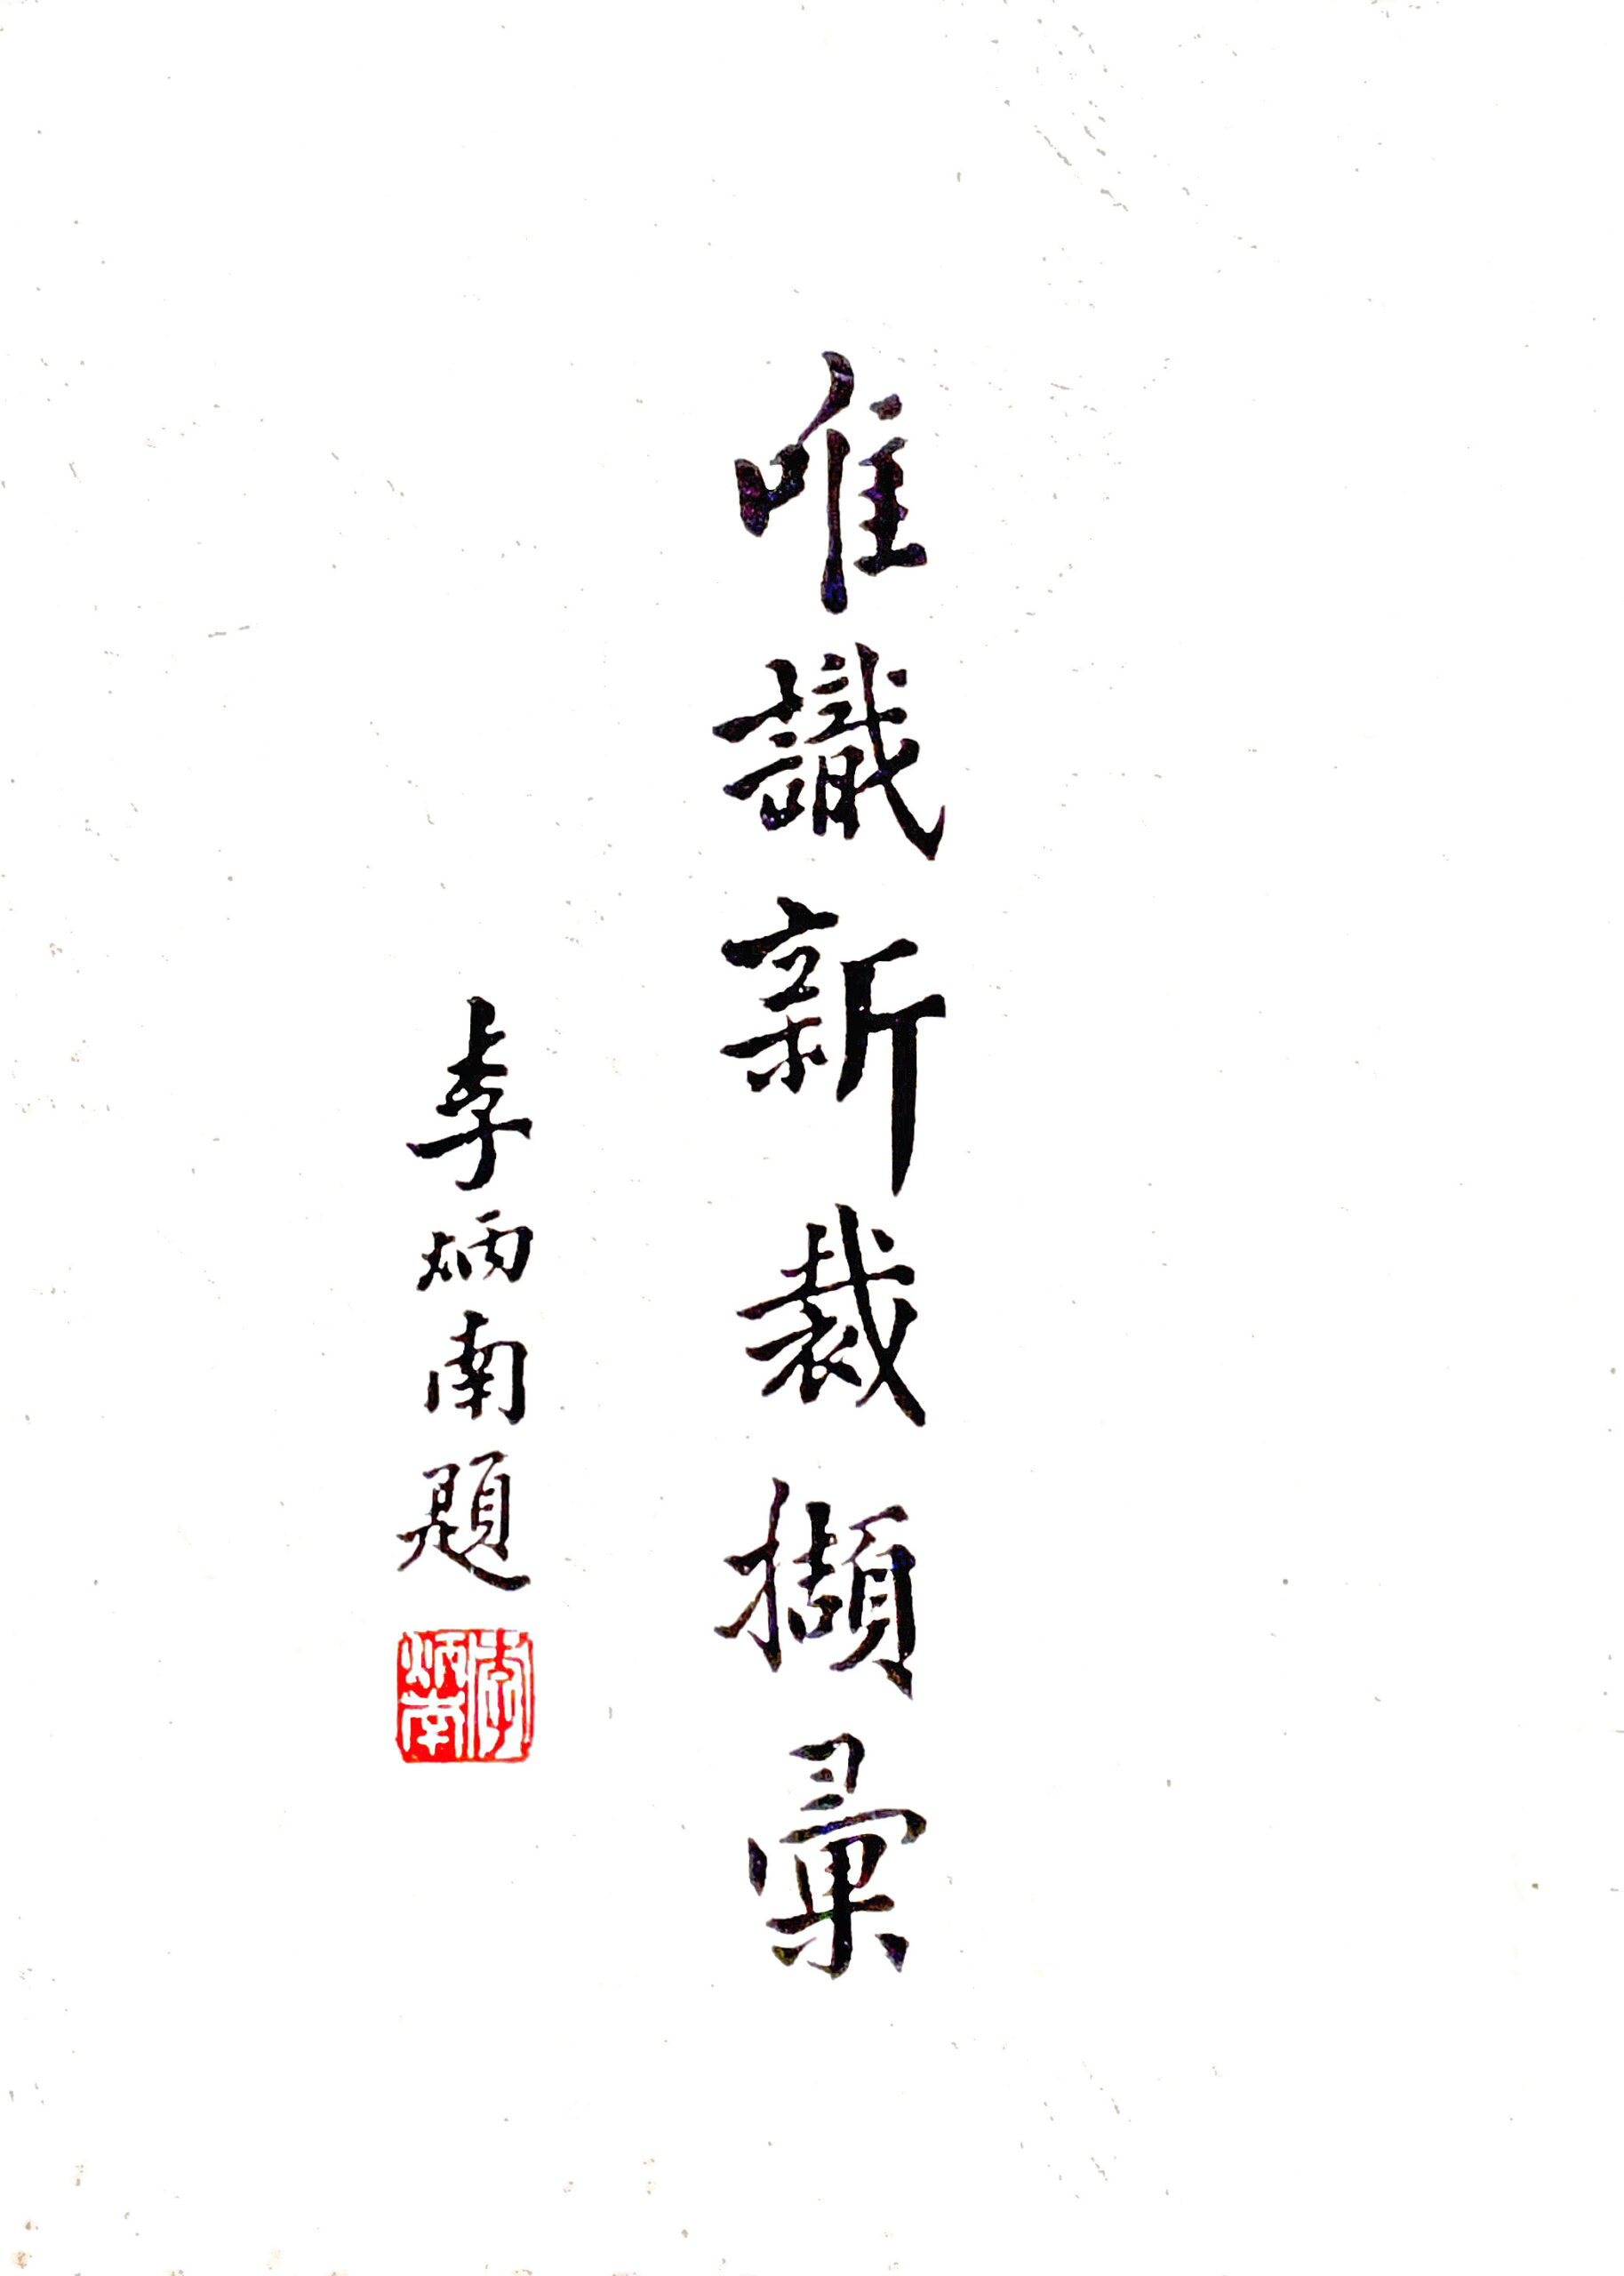 唯識新裁擷彙
李炳南題
李炳南